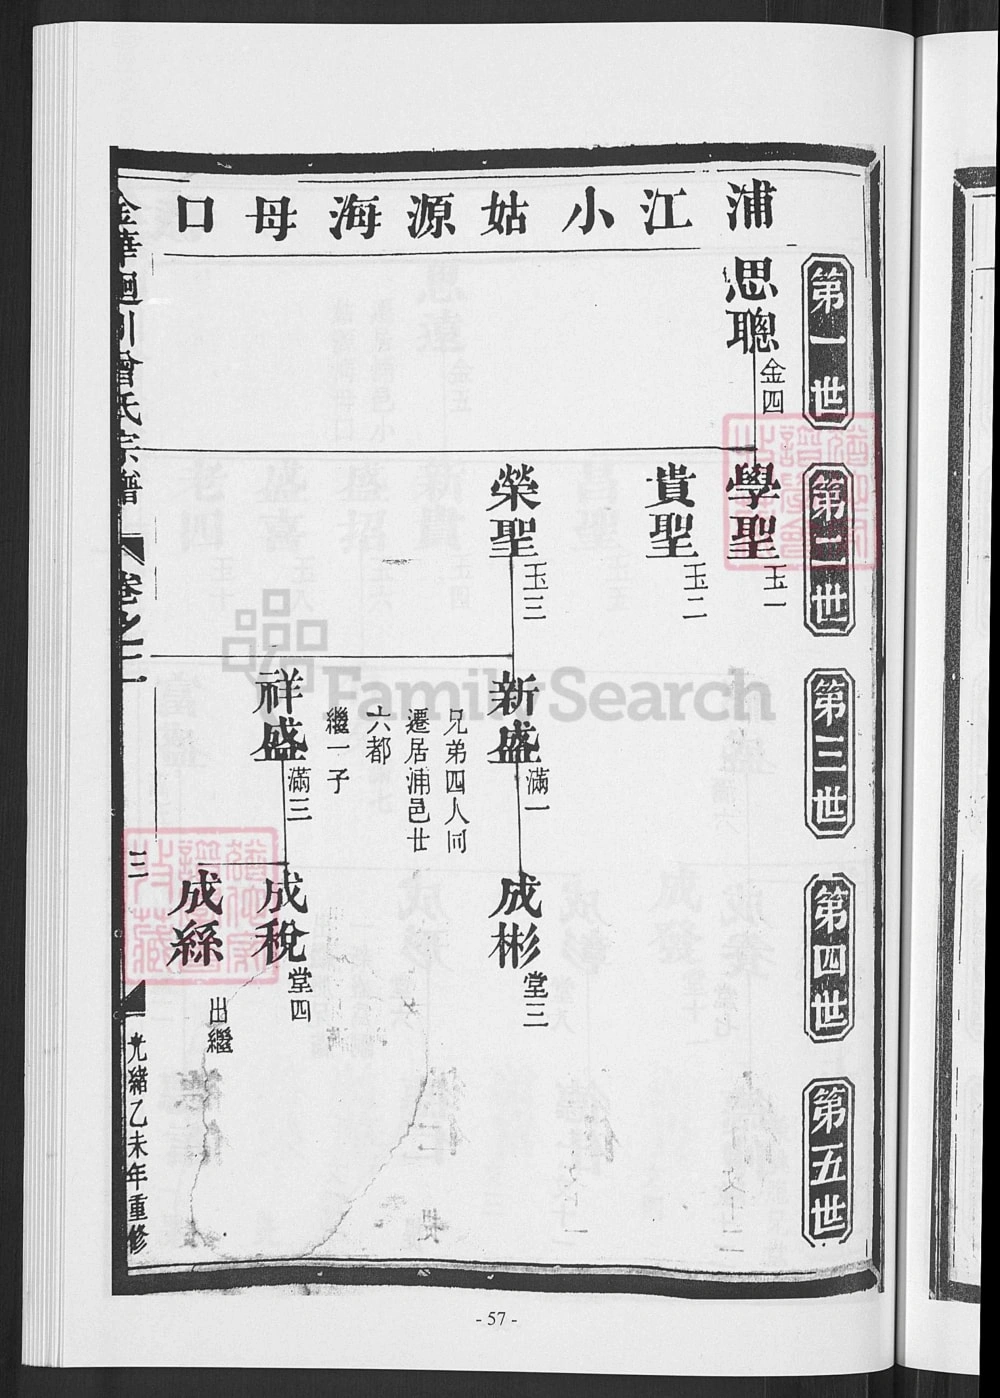 浦江小姑源海母口
第一世
思聰
金四
第二世
學聖
玉一
貴聖
玉二
榮聖
玉三
第三世
新盛
滿一
兄弟四人同
遷居浦邑廿
六都
繼一子
祥盛
滿三
第四世
成彬
堂三
成稅
堂四
成縣
出繼
第五世
金華迴川曾氏宗譜
卷之二
三
光緒乙未年重修
FamilySearch
- 57 -